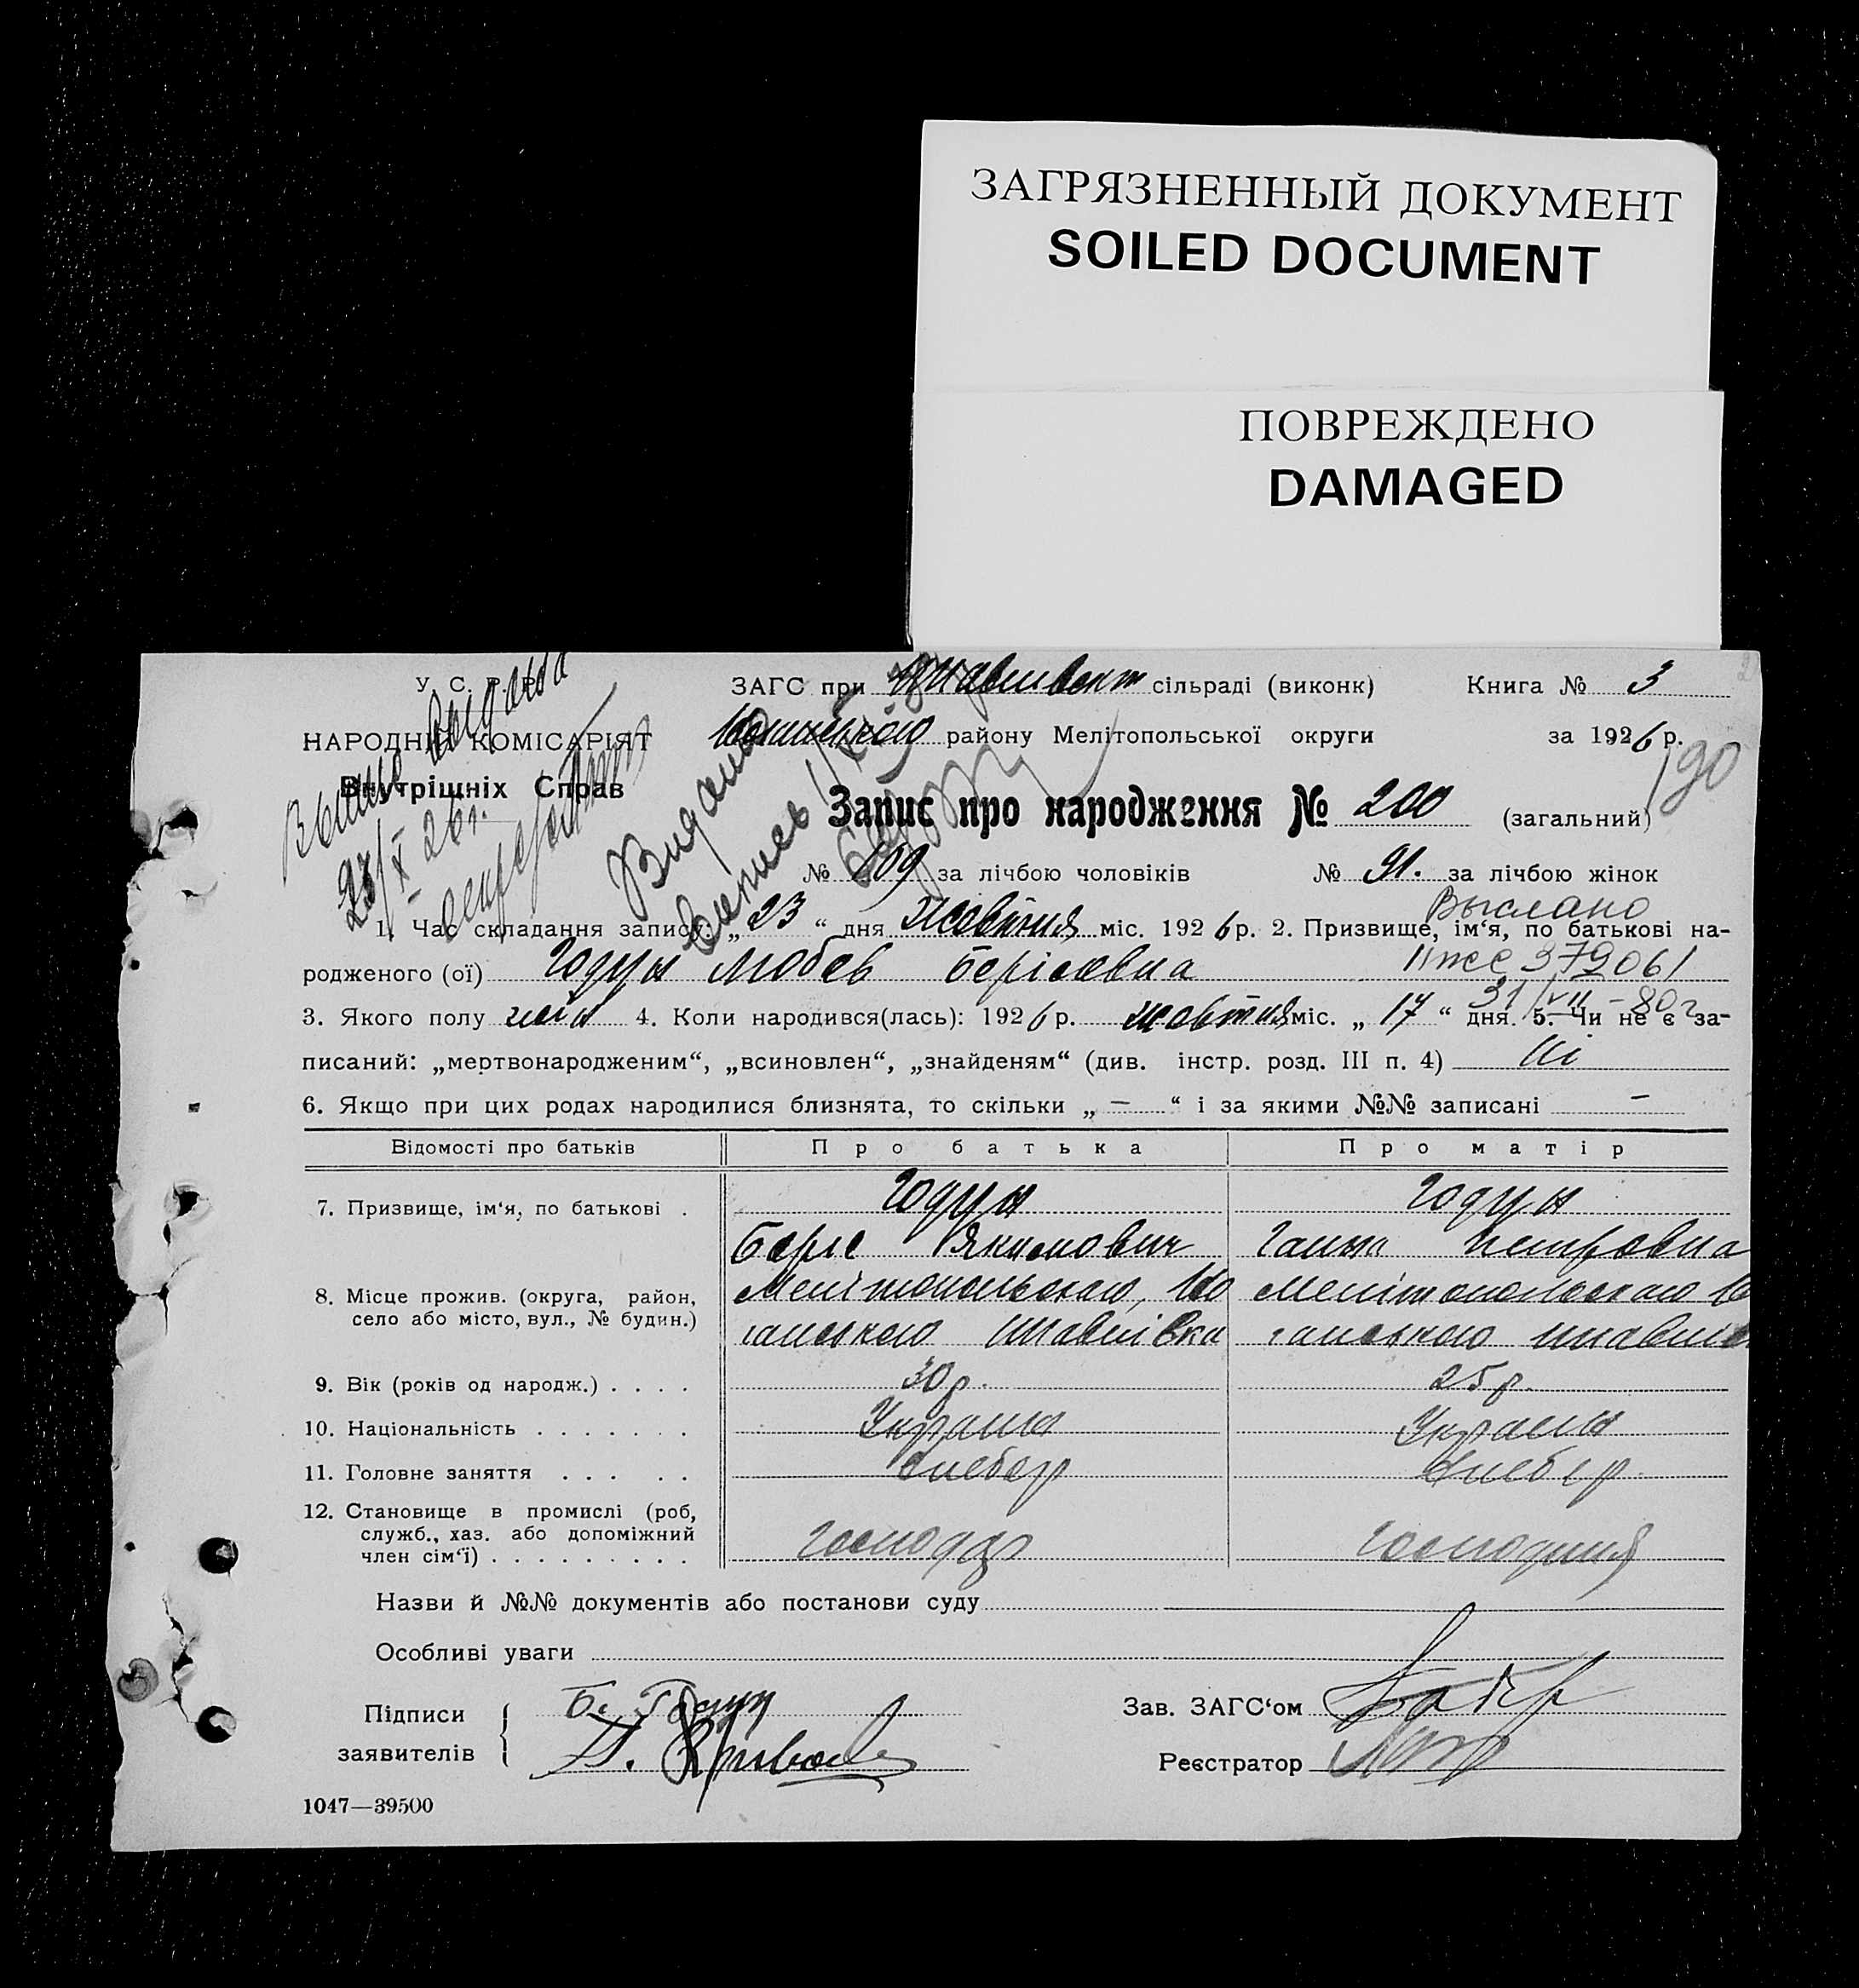 ЗАГРЯЗНЕННЫЙ ДОКУМЕНТ
SOILED DOCUMENT
ПОВРЕЖДЕНО
DAMAGED
У. С. Р. Р.
НАРОДНІЙ КОМІСАРІЯТ
Внутрішніх Справ
ЗАГС при сільраді (виконк) Книга № 3
району Мелітопольської округи за 1926 р.
190
Запис про народження № 200 (загальний)
№ 109 за лічбою чоловіків № 91. за лічбою жінок
Видано
Выслано
1. Час складання запису: „ 23 “ дня Жовтня міс. 1926 р. 2. Призвище, ім‘я, по батькові на-
родженого (ої) Годун Любов Борісовна
379061
31/VII-80г
3. Якого полу 4. Коли народився(лась): 1926 р. жовтня міс. „ 17 “ дня. 5. Чи не є за-
писаний: „мертвонародженим“, „всиновлен“, „знайденям“ (див. інстр. розд. III п. 4) Ні
6. Якщо при цих родах народилися близнята, то скільки „ — “ і за якими №№ записані —
Відомості про батьків Про батька Про матір
7. Призвище, ім‘я, по батькові . Годун Годун
Боріс Якимович Ганна Петровна
8. Місце прожив. (округа, район, Мелітопольського, Мелітопольского
село або місто, вул., № будин.)
9. Вік (років од народж.) . . . . 30 р. 25 р.
10. Національність . . . . . . . Україн Україн
11. Головне заняття . . . . . Хлебор Хлебор.
12. Становище в промислі (роб,
служб., хаз. або допоміжний
член сім‘ї) . . . . . . . . . Господар Господиня
Назви й №№ документів або постанови суду
Особливі уваги
Підписи Б. Годун Зав. ЗАГС‘ом
заявителів Реєстратор
1047—39500